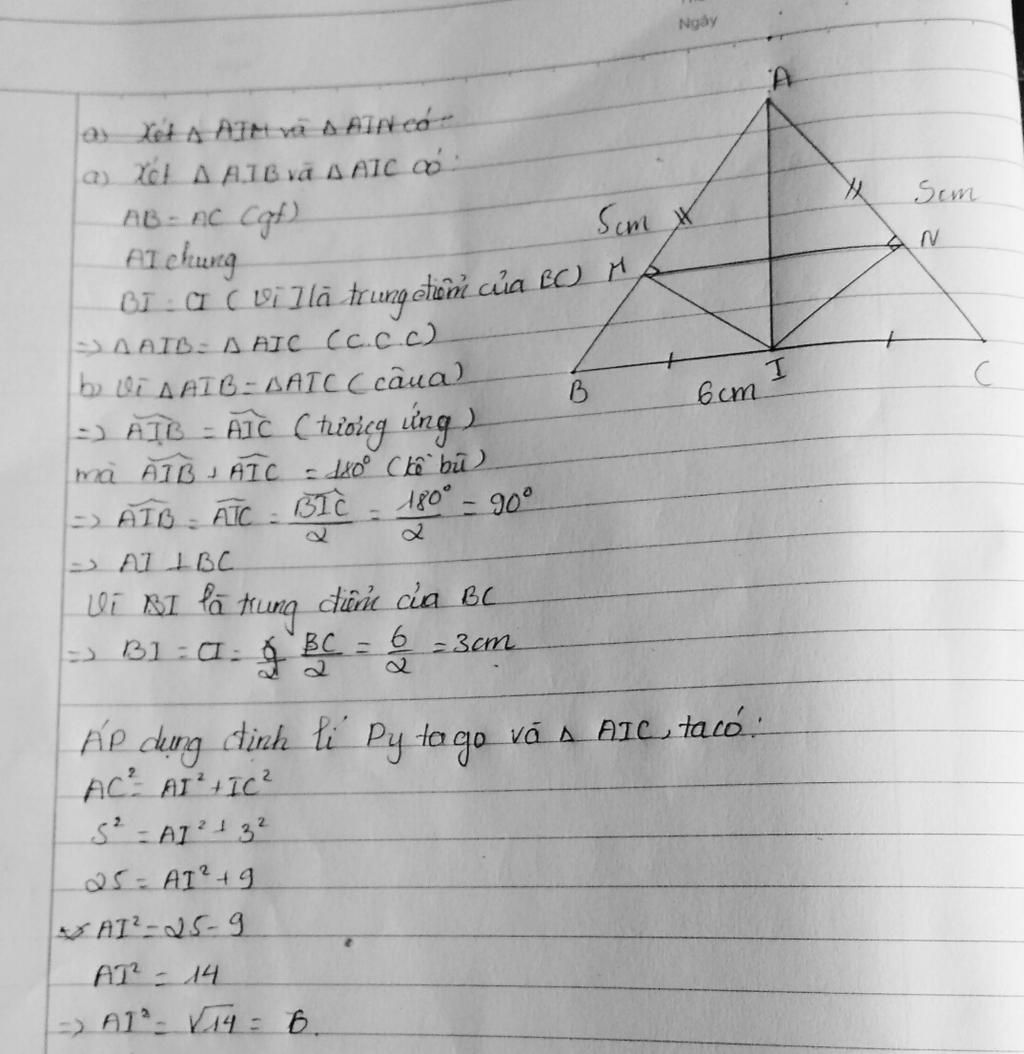 Ngày
a) Xét Δ AIM và Δ AIN có:
a) Xét Δ AIB và Δ AIC có:
AB = AC (gt)
AI chung
BI = CI ( Vì I là trung điểm của BC)
=> Δ AIB = Δ AIC (C.C.C)
b) Vì Δ AIB = Δ AIC ( câu a)
=> AIB = AIC (tương ứng)
mà AIB + AIC = 180° (kề bù)
=> AIB = AIC = BIC/2 = 180°/2 = 90°
=> AI ⊥ BC
Vì BI là trung điểm của BC
=> BI = CI = BC/2 = 6/2 = 3cm
ÁP dụng định lí Py ta go và Δ AIC, ta có:
AC² = AI² + IC²
5² = AI² + 3²
25 = AI² + 9
AI² = 25 - 9
AI² = 14
=> AI² = √14 =
A
5cm
5cm
M
N
B
I
C
6cm